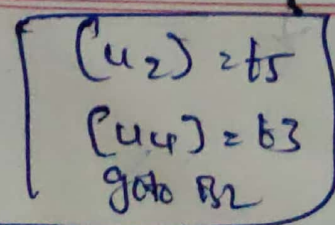 (u2) = t5
(u4) = t3
goto B2